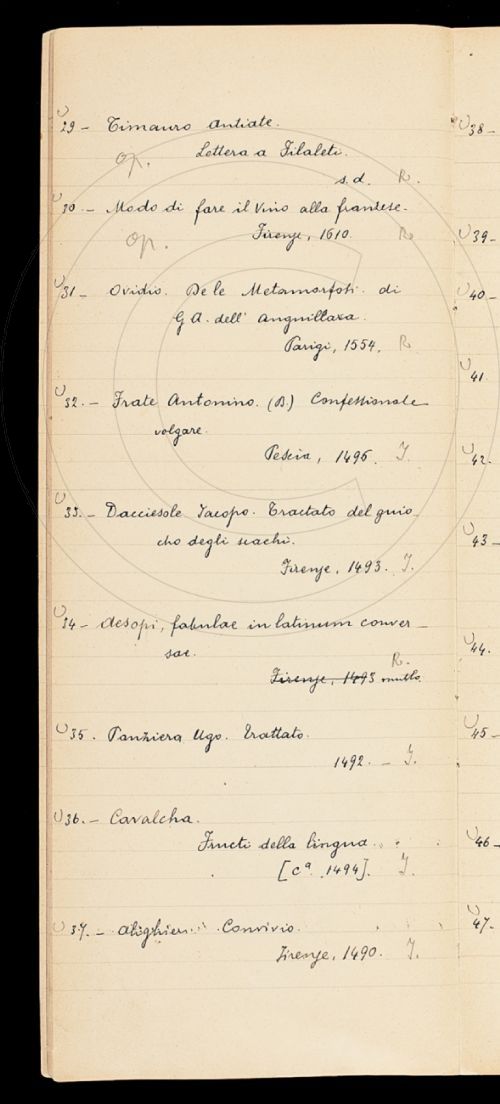 29 – Timauro Antiate.
op. Lettera a Filaleti.
s.d. R.
30. – Modo di fare il vino alla franzese.
op. Firenze, 1610. R
31 – Ovidio. De le Metamorfosi di
G A. dell' Anguillara.
Parigi, 1554. R
32. – Frate Antonino. (B.) Confessionale
volgare.
Pescia, 1495. I.
33. – Dacciesole Jacopo. Tractato del giuo
cho degli scachi.
Firenze, 1493. I.
34 – Aesopi, fabulae in latinum conver –
sae.
R.
Firenze, 1493 mutlo
35. Panziera Ugo. Trattato.
1492. – I.
36. – Cavalcha.
Fructi della lingua.
[cª 1494]. I.
37. – Alighieri Convivio.
Firenze, 1490. I.
38 –
39 –
40 –
41
42.
43 –
44.
45 –
46 –
47.